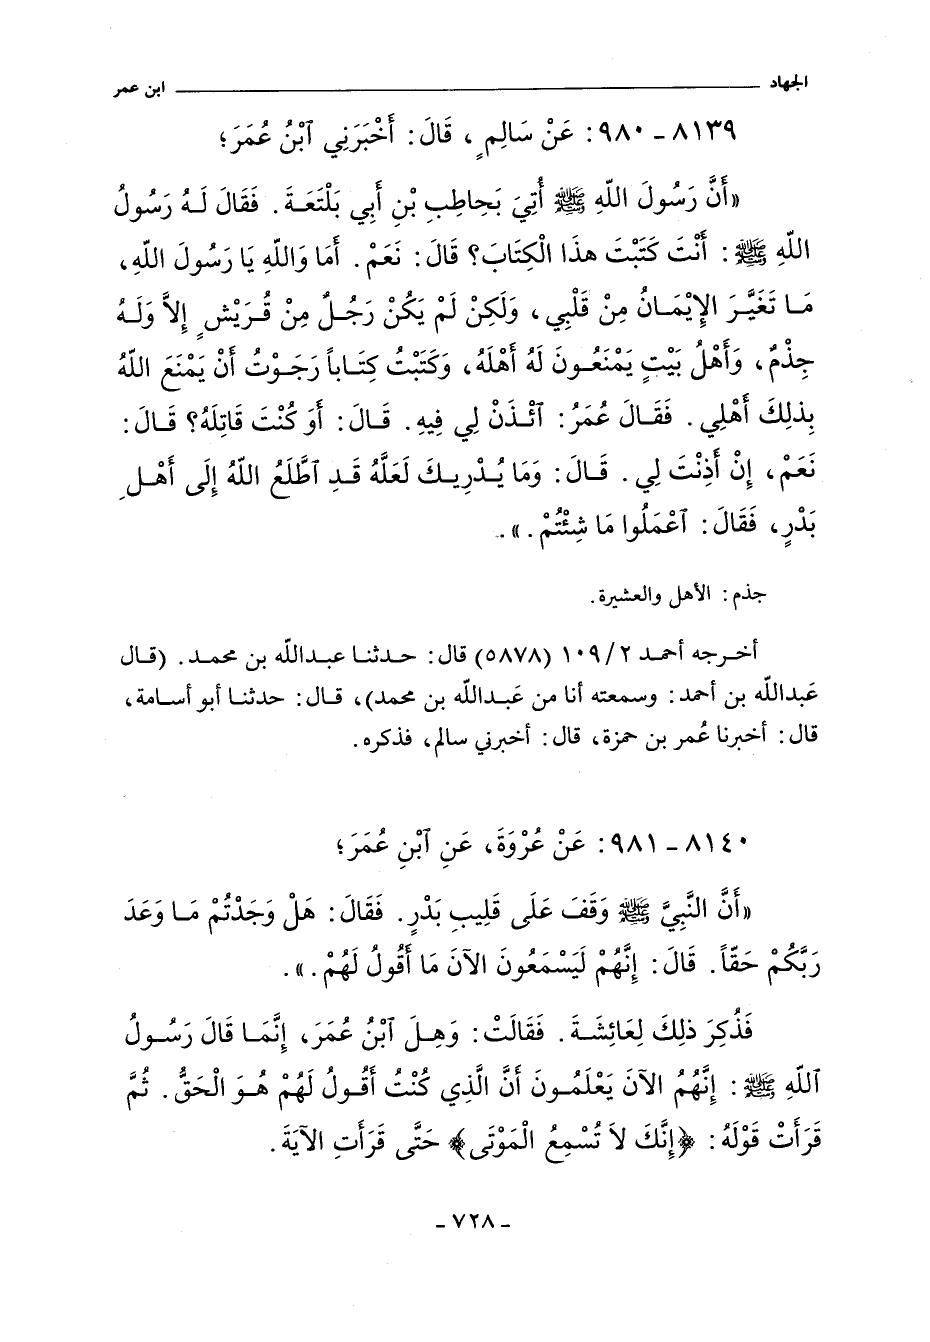 الجهاد ابن عمر
٨١٣٩ - ٩٨٠: عَنْ سَالِمٍ، قَالَ: أَخْبَرَنِي ٱبْنُ عُمَرَ؛
«أَنَّ رَسُولَ اللّهِ ﷺ أُتِيَ بَحِاطِبِ بْنِ أَبِي بَلْتَعَةَ. فَقَالَ لَهُ رَسُولُ
اللّهِ ﷺ: أَنْتَ كَتَبْتَ هذَا الْكِتَابَ؟ قَالَ: نَعَمْ. أَمَا وَاللّهِ يَا رَسُولَ اللّهِ،
مَا تَغَيَّرَ الإِيْمَانُ مِنْ قَلْبِي، وَلَكِنْ لَمْ يَكُنْ رَجُلٌ مِنْ قُرَيْشٍ إِلاَّ وَلَهُ
جِذْمٌ، وَأَهْلُ بَيْتٍ يَمْنَعُونَ لَهُ أَهْلَهُ، وَكَتَبْتُ كِتَاباً رَجَوْتُ أَنْ يَمْنَعَ اللّهُ
بِذلِكَ أَهْلِي. فَقَالَ عُمَرُ: ٱئْذَنْ لِي فِيهِ. قَالَ: أَوَ كُنْتَ قَاتِلَهُ؟ قَالَ:
نَعَمْ، إِنْ أَذِنْتَ لِي. قَالَ: وَمَا يُدْرِيكَ لَعَلَّهُ قَدِ ٱطَّلَعَ اللّهُ إِلَى أَهْلِ
بَدْرٍ، فَقَالَ: ٱعْمَلُوا مَا شِئْتُمْ.».
جذم: الأهل والعشيرة.
أخرجه أحمد ١٠٩/٢ (٥٨٧٨) قال: حدثنا عبدالله بن محمد. (قال
عَبدالله بن أحمد: وسمعته أنا من عَبدالله بن محمد)، قال: حدثنا أبو أسامة،
قال: أخبرنا عُمر بن حمزة، قال: أخبرني سالم، فذكره.
٨١٤٠ - ٩٨١: عَنْ عُرْوَةَ، عَنِ ٱبْنِ عُمَرَ؛
«أَنَّ النَّبِيَّ ﷺ وَقَفَ عَلَى قَلِيبِ بَدْرٍ. فَقَالَ: هَلْ وَجَدْتُمْ مَا وَعَدَ
رَبَّكُمْ حَقّاً. قَالَ: إِنَّهُمْ لَيَسْمَعُونَ الآنَ مَا أَقُولُ لَهُمْ.».
فَذُكِرَ ذلِكَ لِعَائِشَةَ. فَقَالَتْ: وَهِلَ ٱبْنُ عُمَرَ، إِنَّمَا قَالَ رَسُولُ
ٱللّهِ ﷺ: إِنَّهُمُ الآنَ يَعْلَمُونَ أَنَّ الَّذِي كُنْتُ أَقُولُ لَهُمْ هُوَ الْحَقُّ. ثُمَّ
قَرَأَتْ قَوْلَهُ: ﴿إِنَّكَ لاَ تُسْمِعُ الْمَوْتَى﴾ حَتَّى قَرَأَتِ الآيَةَ.
- ٧٢٨ -